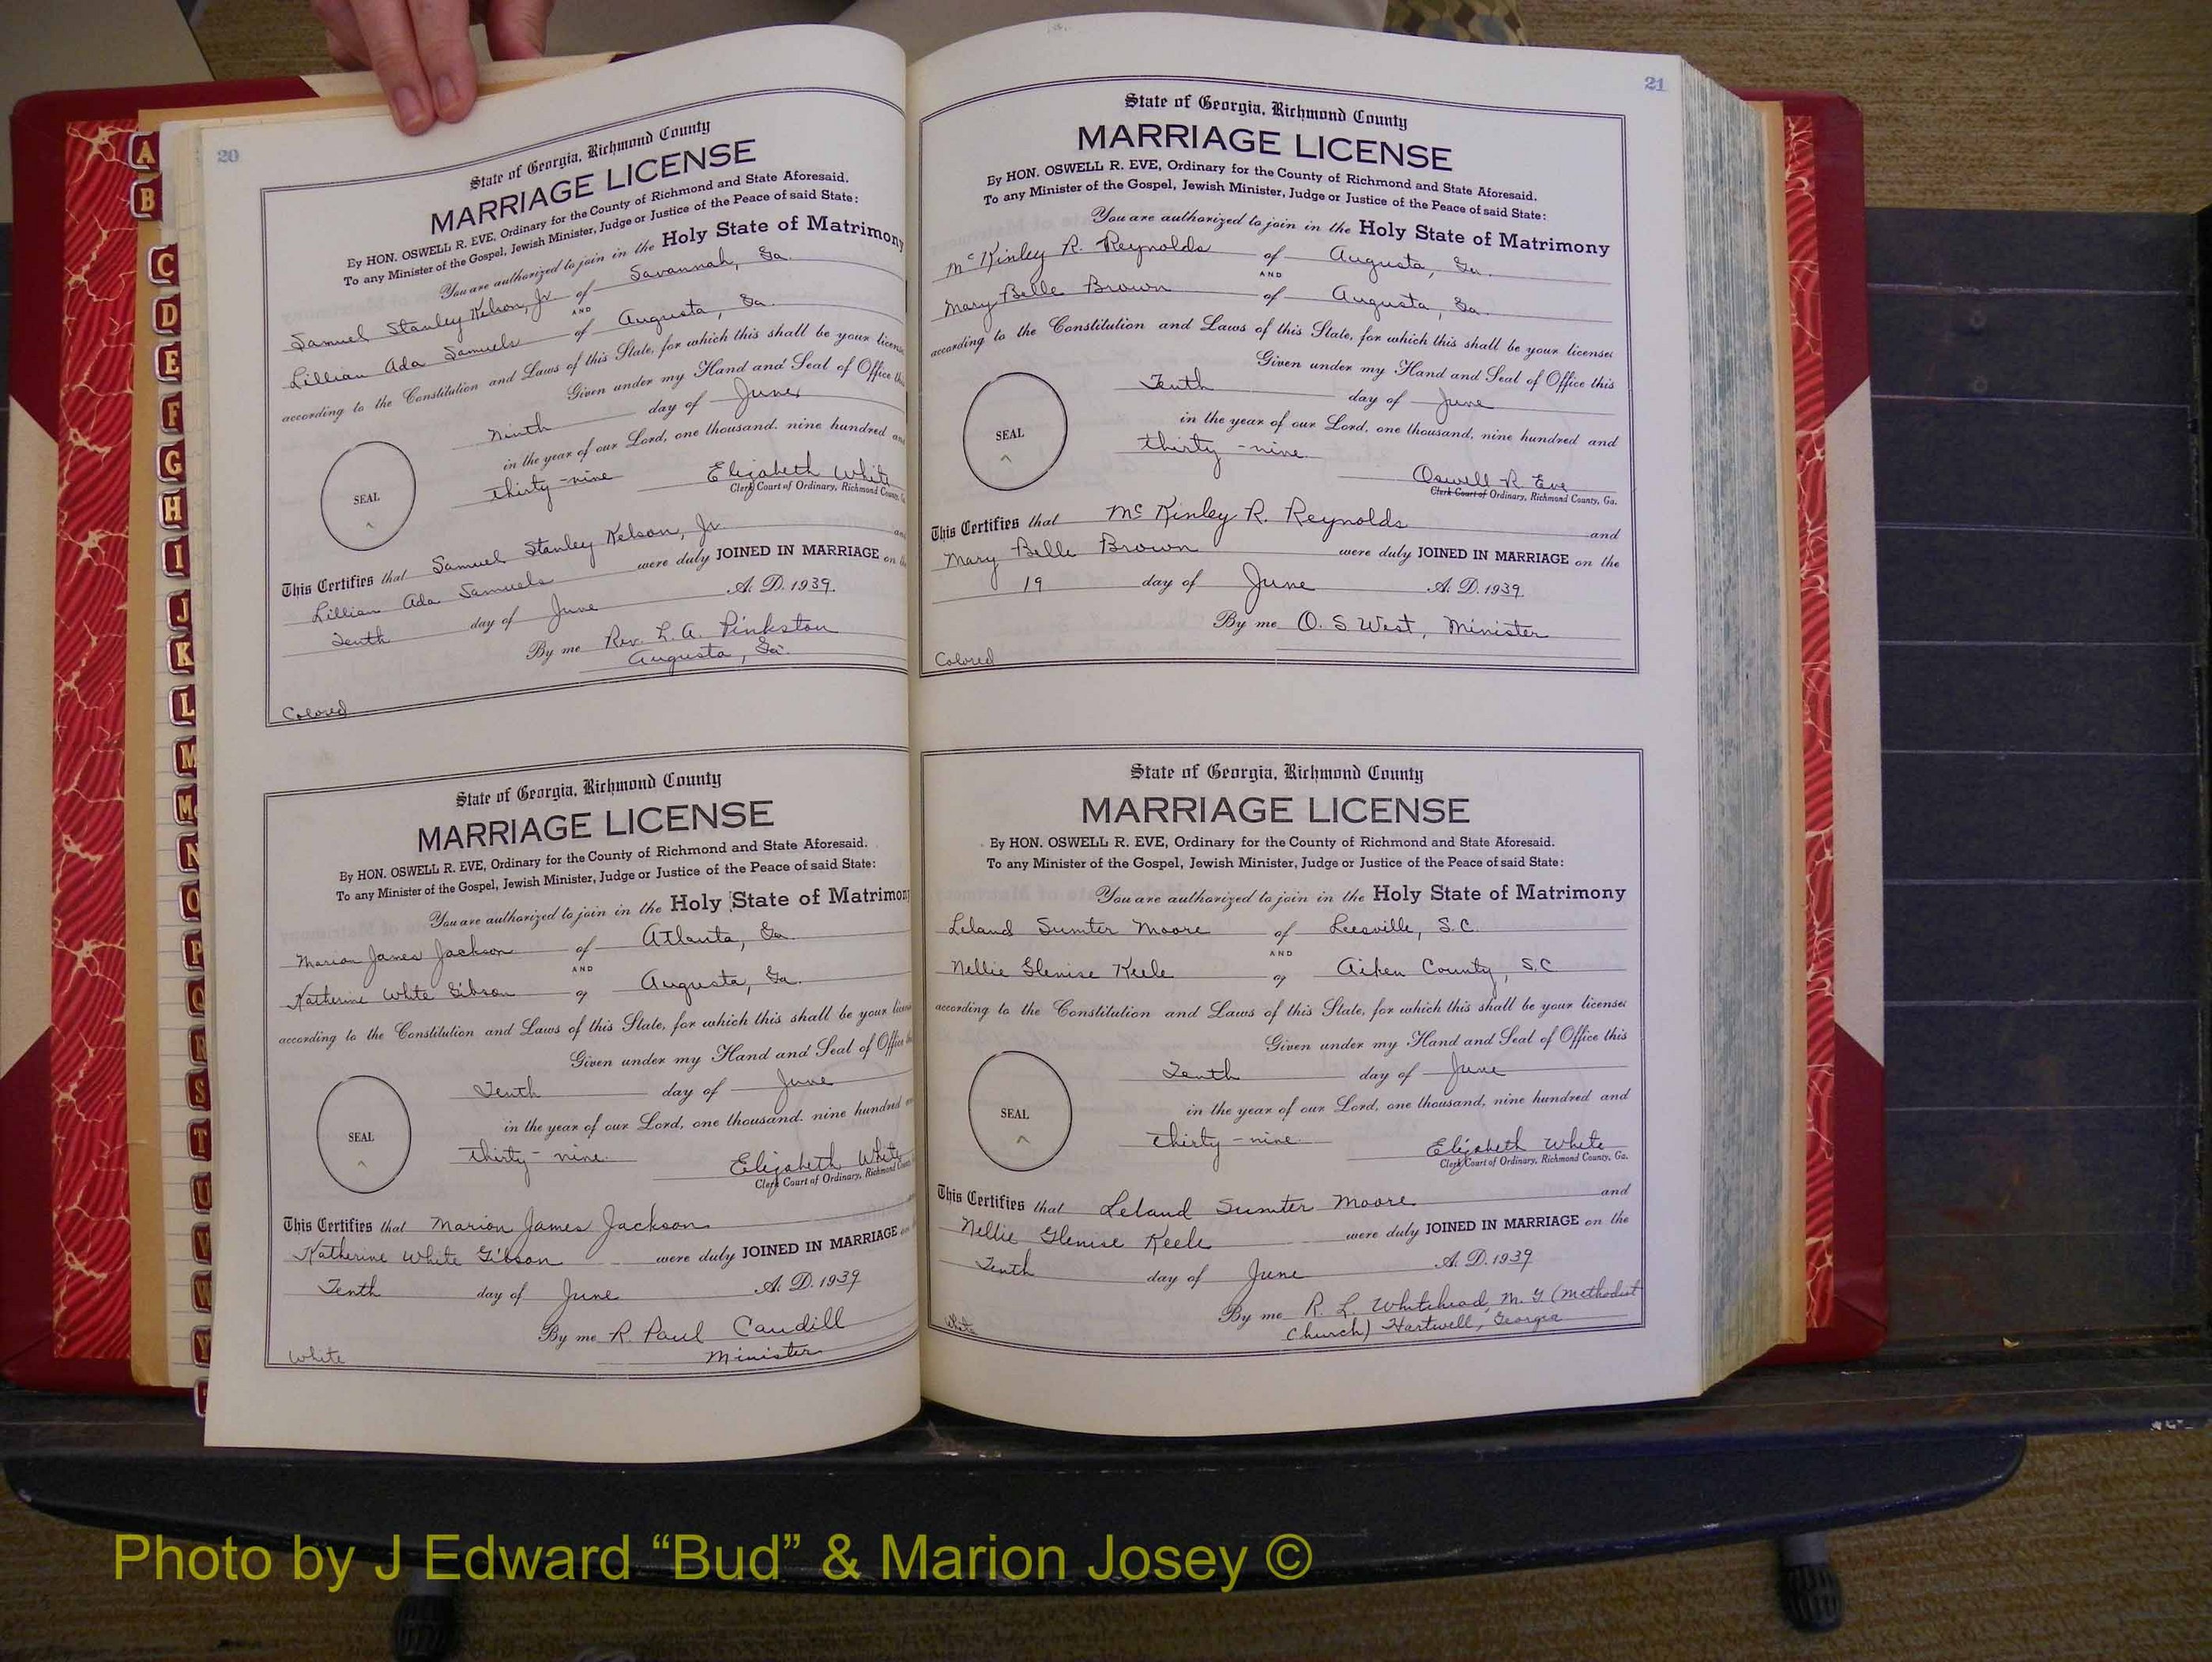 20
State of Georgia, Richmond County
MARRIAGE LICENSE
By HON. OSWELL R. EVE, Ordinary for the County of Richmond and State Aforesaid.
To any Minister of the Gospel, Jewish Minister, Judge or Justice of the Peace of said State:
You are authorized to join in the Holy State of Matrimony
Samuel Stanley Kelson, Jr of Savannah, Ga.
AND
Lillian Ada Samuels of Augusta, Ga.
according to the Constitution and Laws of this State, for which this shall be your license
Given under my Hand and Seal of Office
Ninth day of June
in the year of our Lord, one thousand, nine hundred
thirty-nine Elizabeth White
Clerk Court of Ordinary, Richmond County
SEAL
This Certifies that Samuel Stanley Kelson, Jr.
Lillian Ada Samuels were duly JOINED IN MARRIAGE on
Tenth day of June A. D. 1939.
By me Rev. L. A. Pinkston
Augusta, Ga.
Colored
State of Georgia, Richmond County
MARRIAGE LICENSE
By HON. OSWELL R. EVE, Ordinary for the County of Richmond and State Aforesaid.
To any Minister of the Gospel, Jewish Minister, Judge or Justice of the Peace of said State:
You are authorized to join in the Holy State of Matrimony
Marion James Jackson of Atlanta, Ga.
AND
Katherine White Gibson of Augusta, Ga.
according to the Constitution and Laws of this State, for which this shall be your
Given under my Hand and Seal of Office
Tenth day of June
in the year of our Lord, one thousand, nine hundred
thirty-nine Elizabeth White
Clerk Court of Ordinary, Richmond County
SEAL
This Certifies that Marion James Jackson
Katherine White Gibson were duly JOINED IN MARRIAGE
Tenth day of June A. D. 1939
By me R. Paul Caudill
Minister
White
21
State of Georgia, Richmond County
MARRIAGE LICENSE
By HON. OSWELL R. EVE, Ordinary for the County of Richmond and State Aforesaid.
To any Minister of the Gospel, Jewish Minister, Judge or Justice of the Peace of said State:
You are authorized to join in the Holy State of Matrimony
McKinley R. Reynolds of Augusta, Ga.
AND
Mary Belle Brown of Augusta, Ga.
according to the Constitution and Laws of this State, for which this shall be your license
Given under my Hand and Seal of Office this
Tenth day of June
in the year of our Lord, one thousand, nine hundred and
thirty-nine
Oswell R Eve
Clerk Court of Ordinary, Richmond County, Ga.
SEAL
This Certifies that McKinley R. Reynolds and
Mary Belle Brown were duly JOINED IN MARRIAGE on the
19 day of June A. D. 1939.
By me O. S West, Minister
Colored
State of Georgia, Richmond County
MARRIAGE LICENSE
By HON. OSWELL R. EVE, Ordinary for the County of Richmond and State Aforesaid.
To any Minister of the Gospel, Jewish Minister, Judge or Justice of the Peace of said State:
You are authorized to join in the Holy State of Matrimony
Leland Sumter Moore of Leesville, S.C.
AND
Nellie Glenise Keele of Aiken County, S.C
according to the Constitution and Laws of this State, for which this shall be your license
Given under my Hand and Seal of Office this
Tenth day of June
in the year of our Lord, one thousand, nine hundred and
thirty-nine Elizabeth White
Clerk Court of Ordinary, Richmond County, Ga.
SEAL
This Certifies that Leland Sumter Moore and
Nellie Glenise Keele were duly JOINED IN MARRIAGE on the
Tenth day of June A. D. 1939
By me R. L. Whitehead, M. G (Methodist
Church) Hartwell, Georgia
White
A
B
C
D
E
F
G
H
I
J
K
L
M
Mc
N
O
P
Q
R
S
T
U
V
W
Y
Photo by J Edward “Bud” & Marion Josey ©